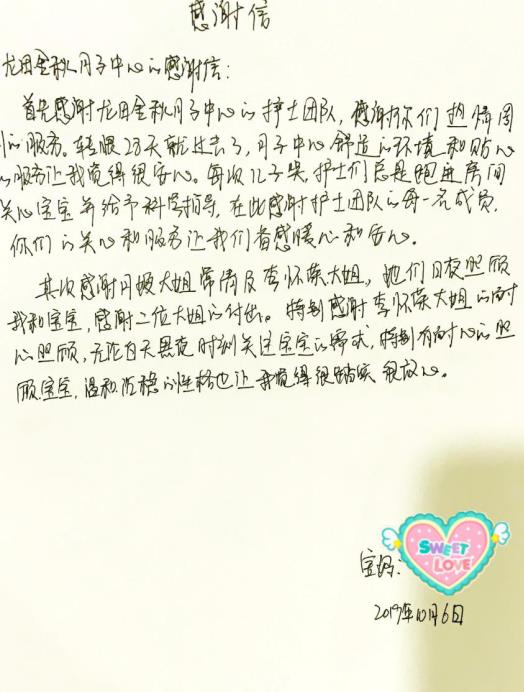 感谢信
龙田金秋月子中心的感谢信:
首先感谢龙田金秋月子中心的护士团队,感谢你们热情周
到的服务。转眼28天就过去了,月子中心舒适的环境和贴心
的服务让我觉得很安心。每次儿子哭,护士们总是跑进房间
关心宝宝并给予科学指导,在此感谢护士团队的每一名成员,
你们的关心和服务让我们备感暖心和安心。
其次感谢月嫂大姐 及李怀荣大姐,她们日夜照顾
我和宝宝,感谢二位大姐的付出。特别感谢李怀荣大姐的耐
心照顾,无论白天黑夜时刻关注宝宝的需求,特别有耐心的照
顾宝宝,温和沉稳的性格也让我觉得很踏实很放心。
宝妈:
SWEET
LOVE
2019年10月6日